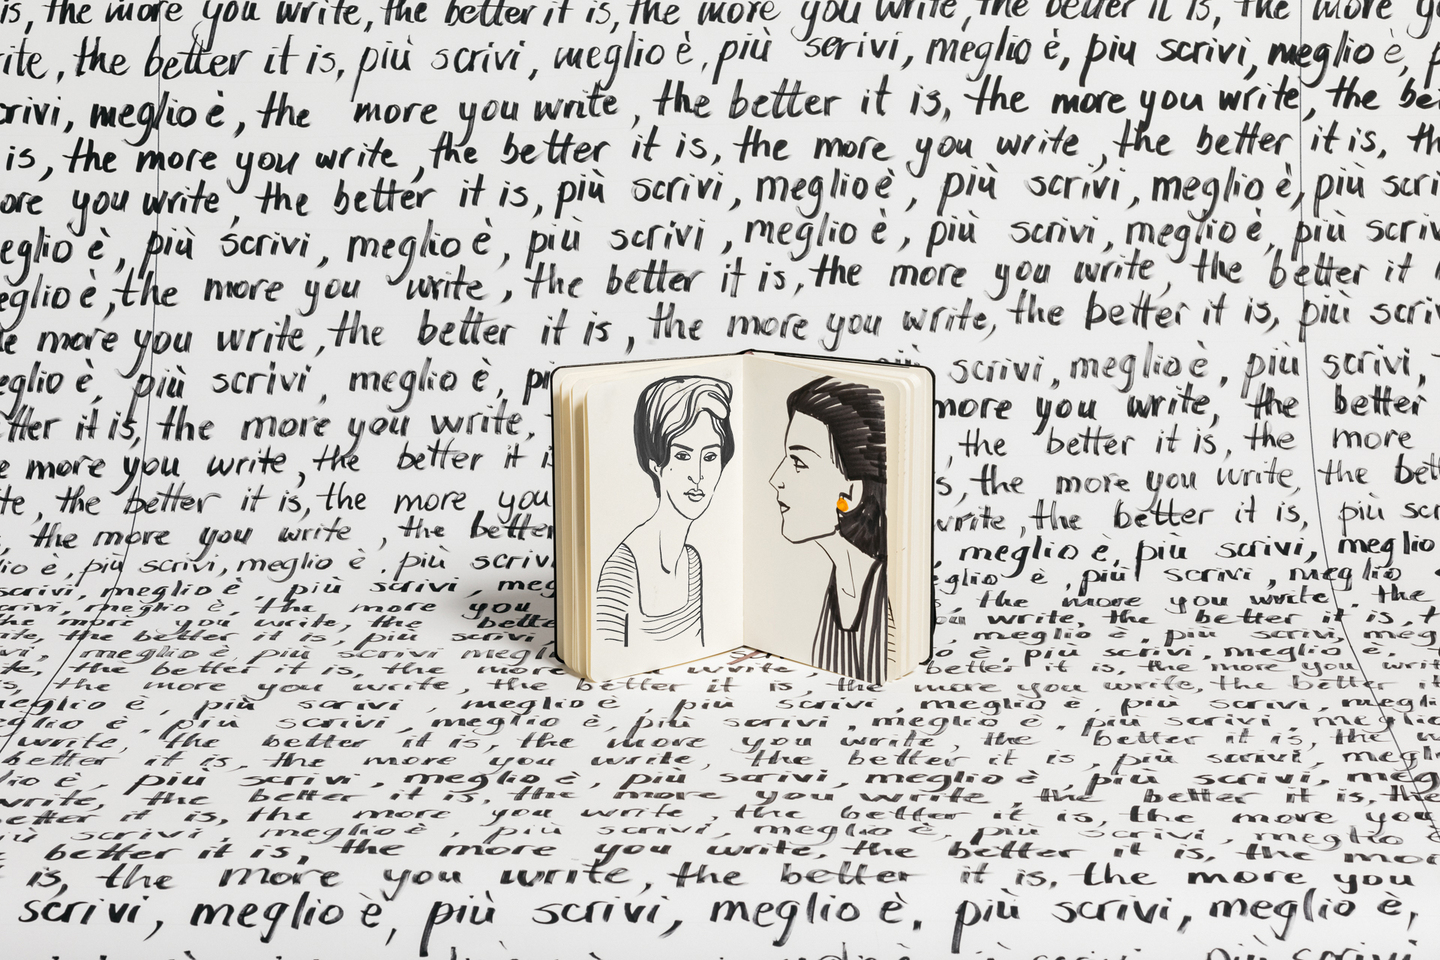 is, the more you write, the better it is, the more you write, the better it is, the more
the better it is, più scrivi, meglio è, più scrivi, meglio è, più scrivi, meglio è,
meglio è, the more you write, the better it is, the more you write, the
is, the more you write, the better it is, the more you write, the better it is,
you write, the better it is, più scrivi, meglio è, più scrivi, meglio è, più
è, più scrivi, meglio è, più scrivi, meglio è, più scrivi, meglio è, più
è, the more you write, the better it is, the more you write, the better it
more you write, the better it is, the more you write, the better it is, più
è, più scrivi, meglio è, scrivi, meglio è, più scrivi,
it is, the more you write, more you write, the better
more you write, the better it the better it is, the more
the better it is, the more you the more you write, the
the more you write, the better the better it is, più
è, più scrivi, meglio è, più scrivi meglio è, più scrivi, meglio
scrivi, meglio è, più scrivi, è, più scrivi, meglio
meglio è, the more you the more you write, the
the more you write, the better write, the better it is, the
the better it is, più scrivi meglio è, più scrivi,
meglio è più scrivi, meglio è, più scrivi, meglio è,
the better it is, the more write, better it is, the more you
the more you write, the better it is, the more you write, the better
è, più scrivi, meglio è, più scrivi, meglio è, più scrivi,
è, più scrivi, meglio è, più scrivi, meglio è, più scrivi,
write, the better it is, the more you write, the better it is, the
better it is, the more you write, the better it is, più scrivi,
è, più scrivi, meglio è, più scrivi, meglio è, più scrivi,
write, the better it is, the more you write, the better it is, the
it is, the more you write, the better it is, the more you
scrivi, meglio è, più scrivi, meglio è, più scrivi, meglio è
better it is, the more you write, the better it is, the
is, the more you write, the better it is, the more you
scrivi, meglio è, più scrivi, meglio è, più scrivi, meglio è,